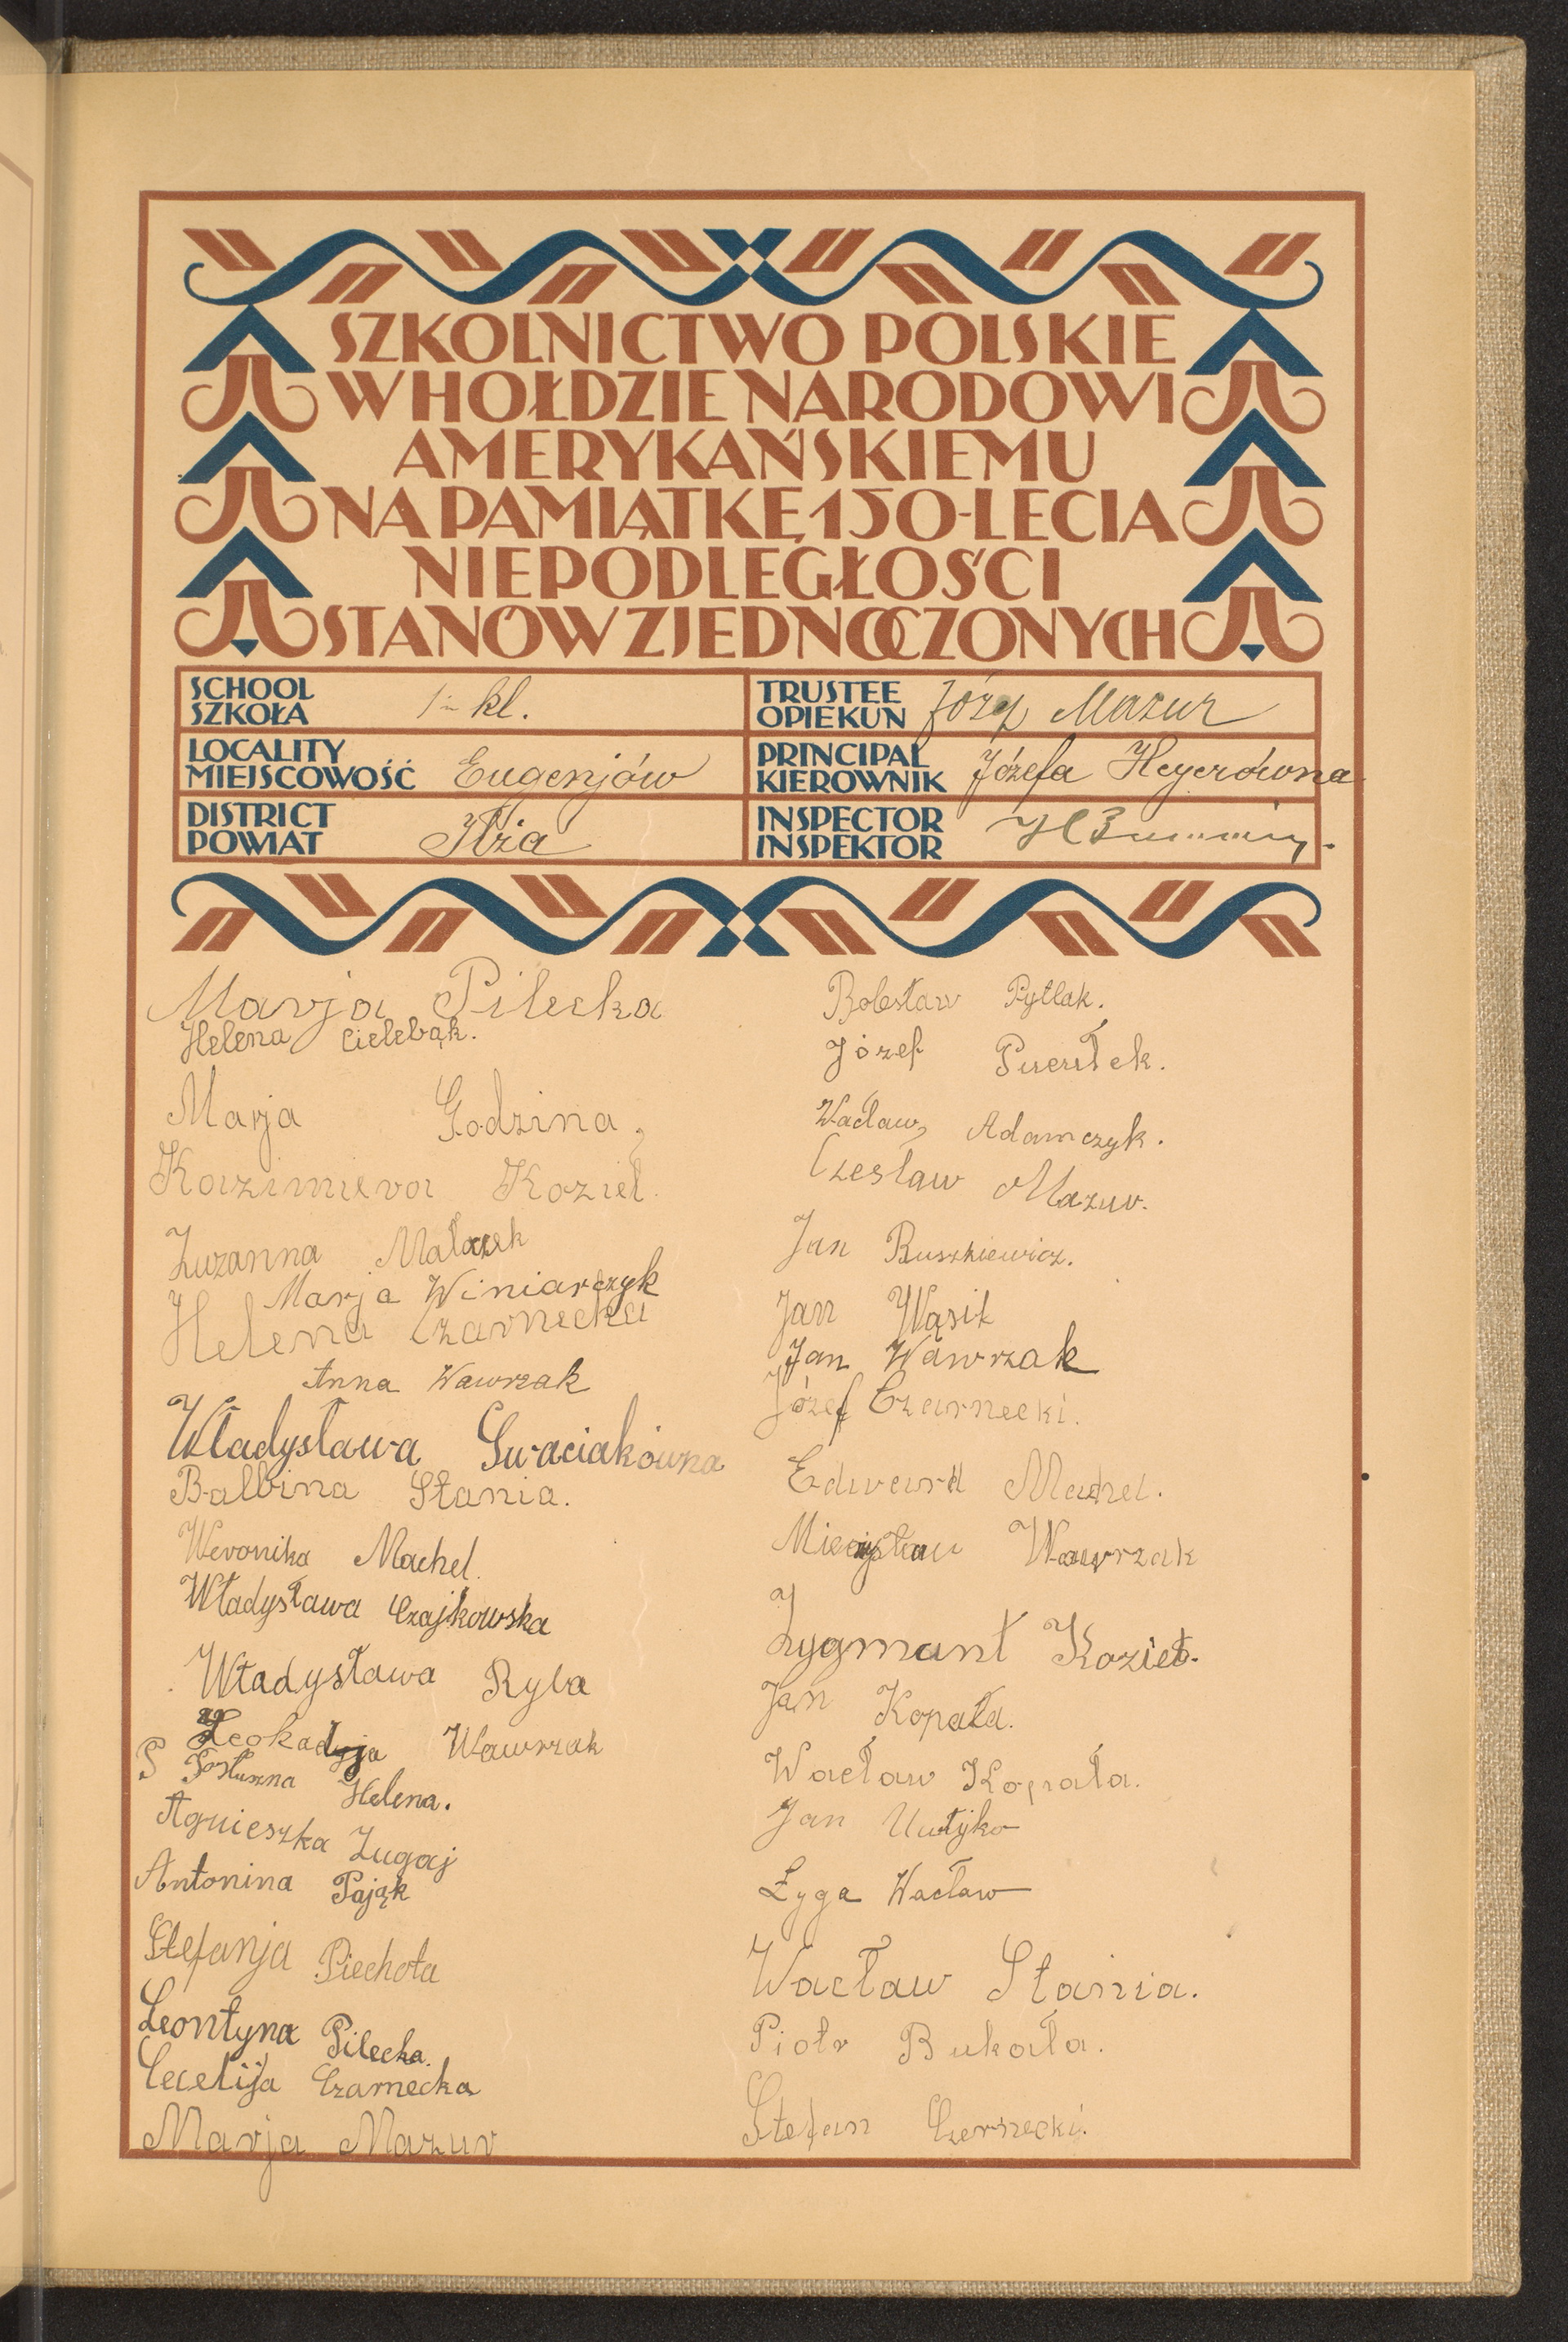 SZKOLNICTWO POLSKIE
W HOŁDZIE NARODOWI
AMERYKAŃSKIEMU
NA PAMIĄTKĘ 150-LECIA
NIEPODLEGŁOŚCI
STANÓW ZJEDNOCZONYCH
SCHOOL
SZKOŁA
1-kl.
TRUSTEE
OPIEKUN
Józef Mazur
LOCALITY
MIEJSCOWOŚĆ
Eugenjów
PRINCIPAL
KIEROWNIK
Józefa Heyerówna
DISTRICT
POWIAT
Iłża
INSPECTOR
INSPEKTOR
Marja Pilecka
Helena Cielebąk.
Marja Godzina
Kazimiera Kozieł.
Zuzanna Małaszek
Marja Winiarczyk
Helena Czarnecka
Anna Wawrzak
Władysława Swaciakówna
Balbina Stania.
Weronika Machel.
Władysława Czajkowska
Władysława Ryba
Leokadyja Wawrzak
S Posłuszna Helena.
Agnieszka Zugaj
Antonina Pająk
Stefanja Piechota
Leontyna Pilecka.
Cecelija Czarnecka
Marja Mazur
Bolesław Pytlak.
Józef
Wacław Adamczyk.
Czesław Mazur.
Jan Ruszkiewicz.
Jan Wąsik
Jan Wawrzak
Józef Czarnecki.
Edward Machel.
Mieczysław Wawrzak
Zygmunt Kozieł.
Jan Kopała.
Wacław Kopała.
Jan
Łyga Wacław
Wacław Stania.
Piotr Bukała.
Stefan Czernecki.